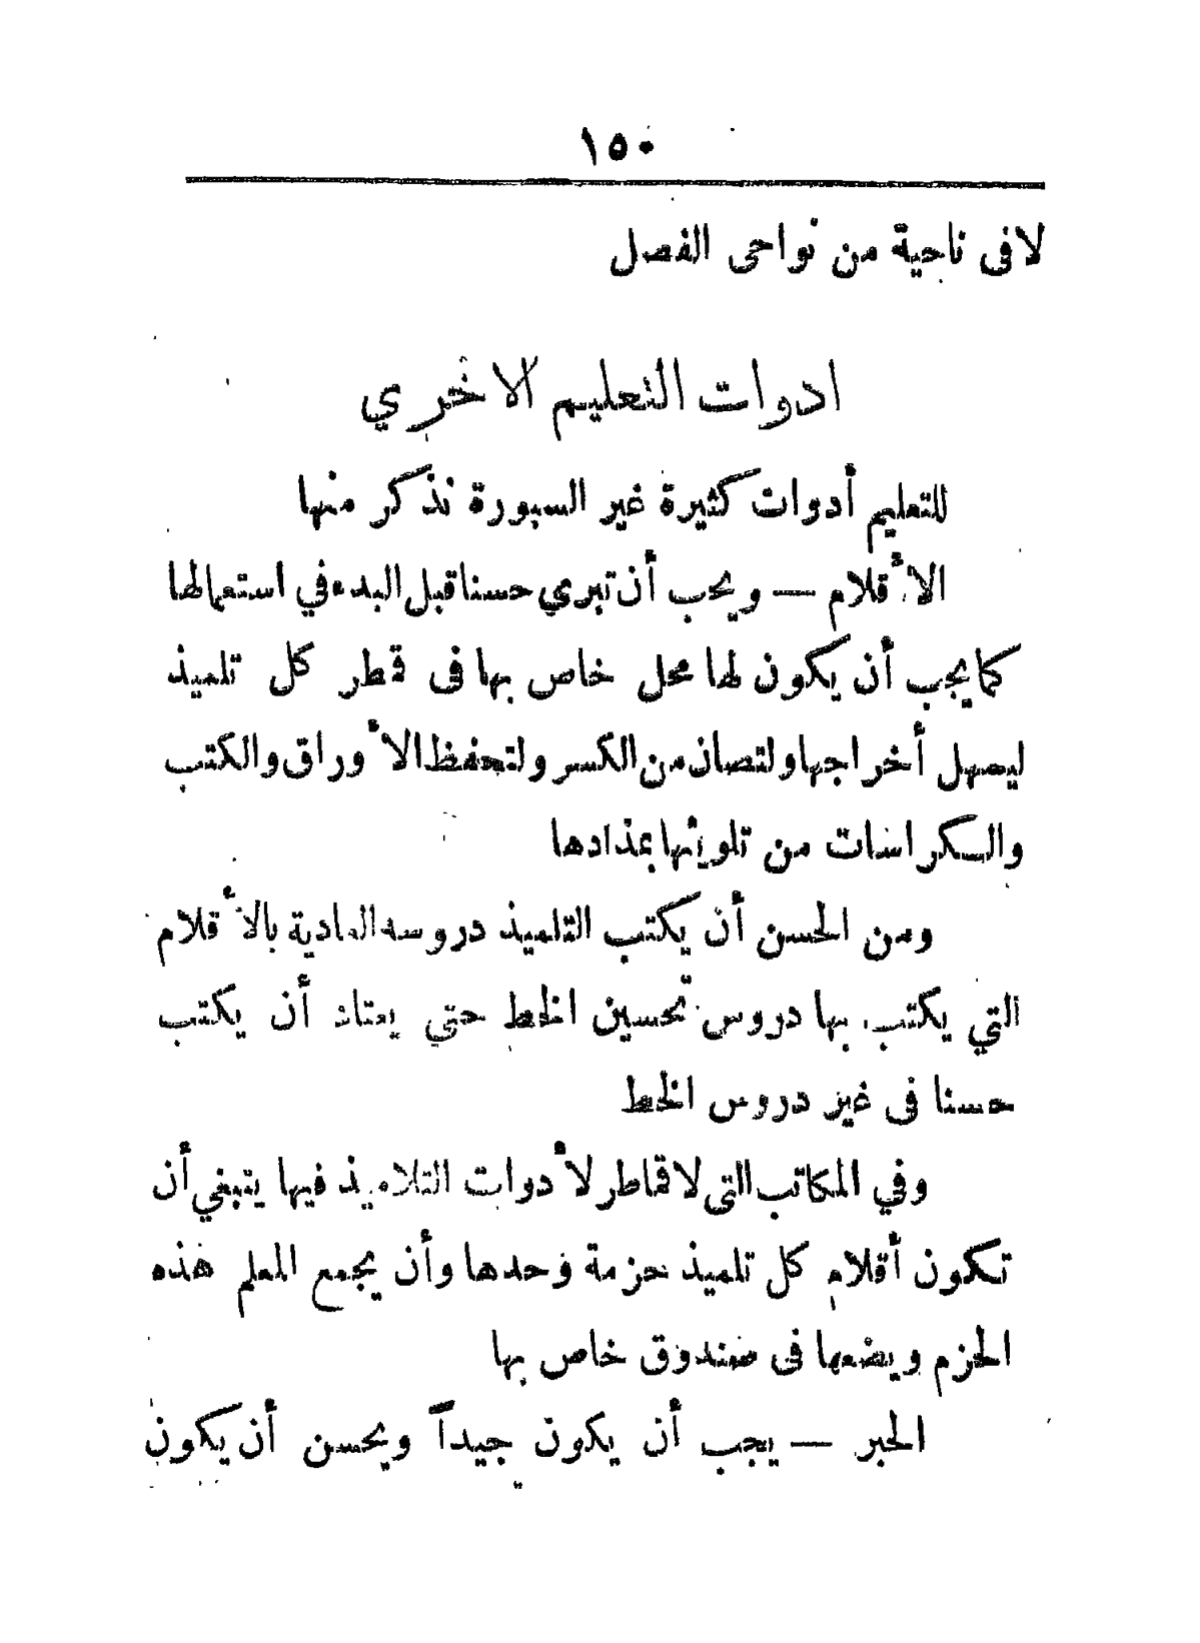 ١٥٠
لا فى ناحية من نواحى الفصل
ادوات التعليم الاخري
للتعليم أدوات كثيرة غير السبورة نذكر منها
الأقلام — ويجب أن تبري حسنا قبل البدء في استعمالها
كما يجب أن يكون لها محل خاص بها فى قمطر كل تلميذ
ليسهل أخراجها ولتصان من الكسر ولتحفظ الأوراق والكتب
والكراسات من تلويثها بمدادها
ومن الحسن أن يكتب التلميذ دروسه العادية بالأقلام
التي يكتب بها دروس تحسين الخط حتي يعتاد أن يكتب
حسنا فى غير دروس الخط
وفي المكاتب التى لا قماطر لأدوات التلاميذ فيها ينبغي أن
تكون أقلام كل تلميذ حزمة وحدها وأن يجمع المعلم هذه
الحزم ويضعها فى صندوق خاص بها
الحبر — يجب أن يكون جيداً ويحسن أن يكون